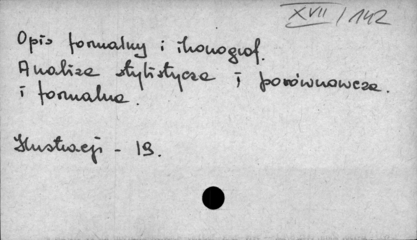 XVII/142
Opis formalny i ikonograf.
Analiza stylistycza i porównawcza.
i formalna.
Ilustracji - 19.